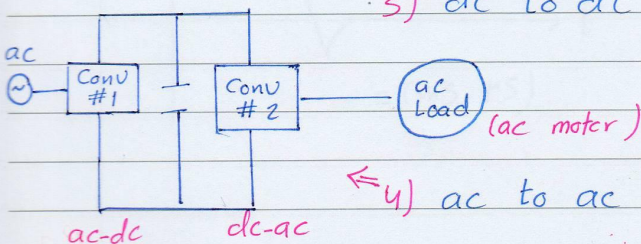 3) ac to dc
ac
Conv
#1
Conv
#2
ac
Load
(ac motor)
⇐ 4) ac to ac
ac-dc
dc-ac